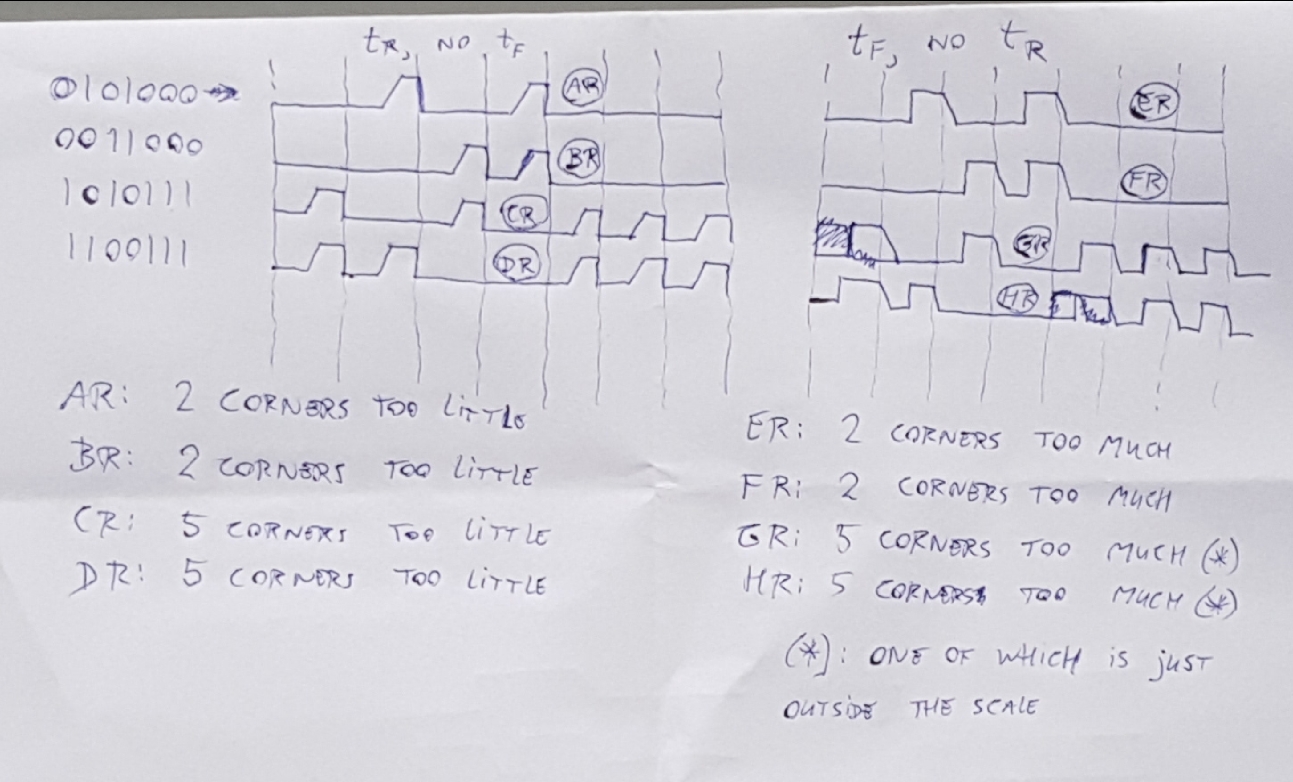 tR, NO tF
tF, NO tR
0101000
AR
ER
0011000
BR
FR
1010111
CR
GR
1100111
DR
HR
AR: 2 CORNERS TOO LITTLE
BR: 2 CORNERS TOO LITTLE
CR: 5 CORNERS TOO LITTLE
DR: 5 CORNERS TOO LITTLE
ER: 2 CORNERS TOO MUCH
FR: 2 CORNERS TOO MUCH
GR: 5 CORNERS TOO MUCH (*)
HR: 5 CORNERS TOO MUCH (*)
(*): ONE OF WHICH IS JUST
OUTSIDE THE SCALE